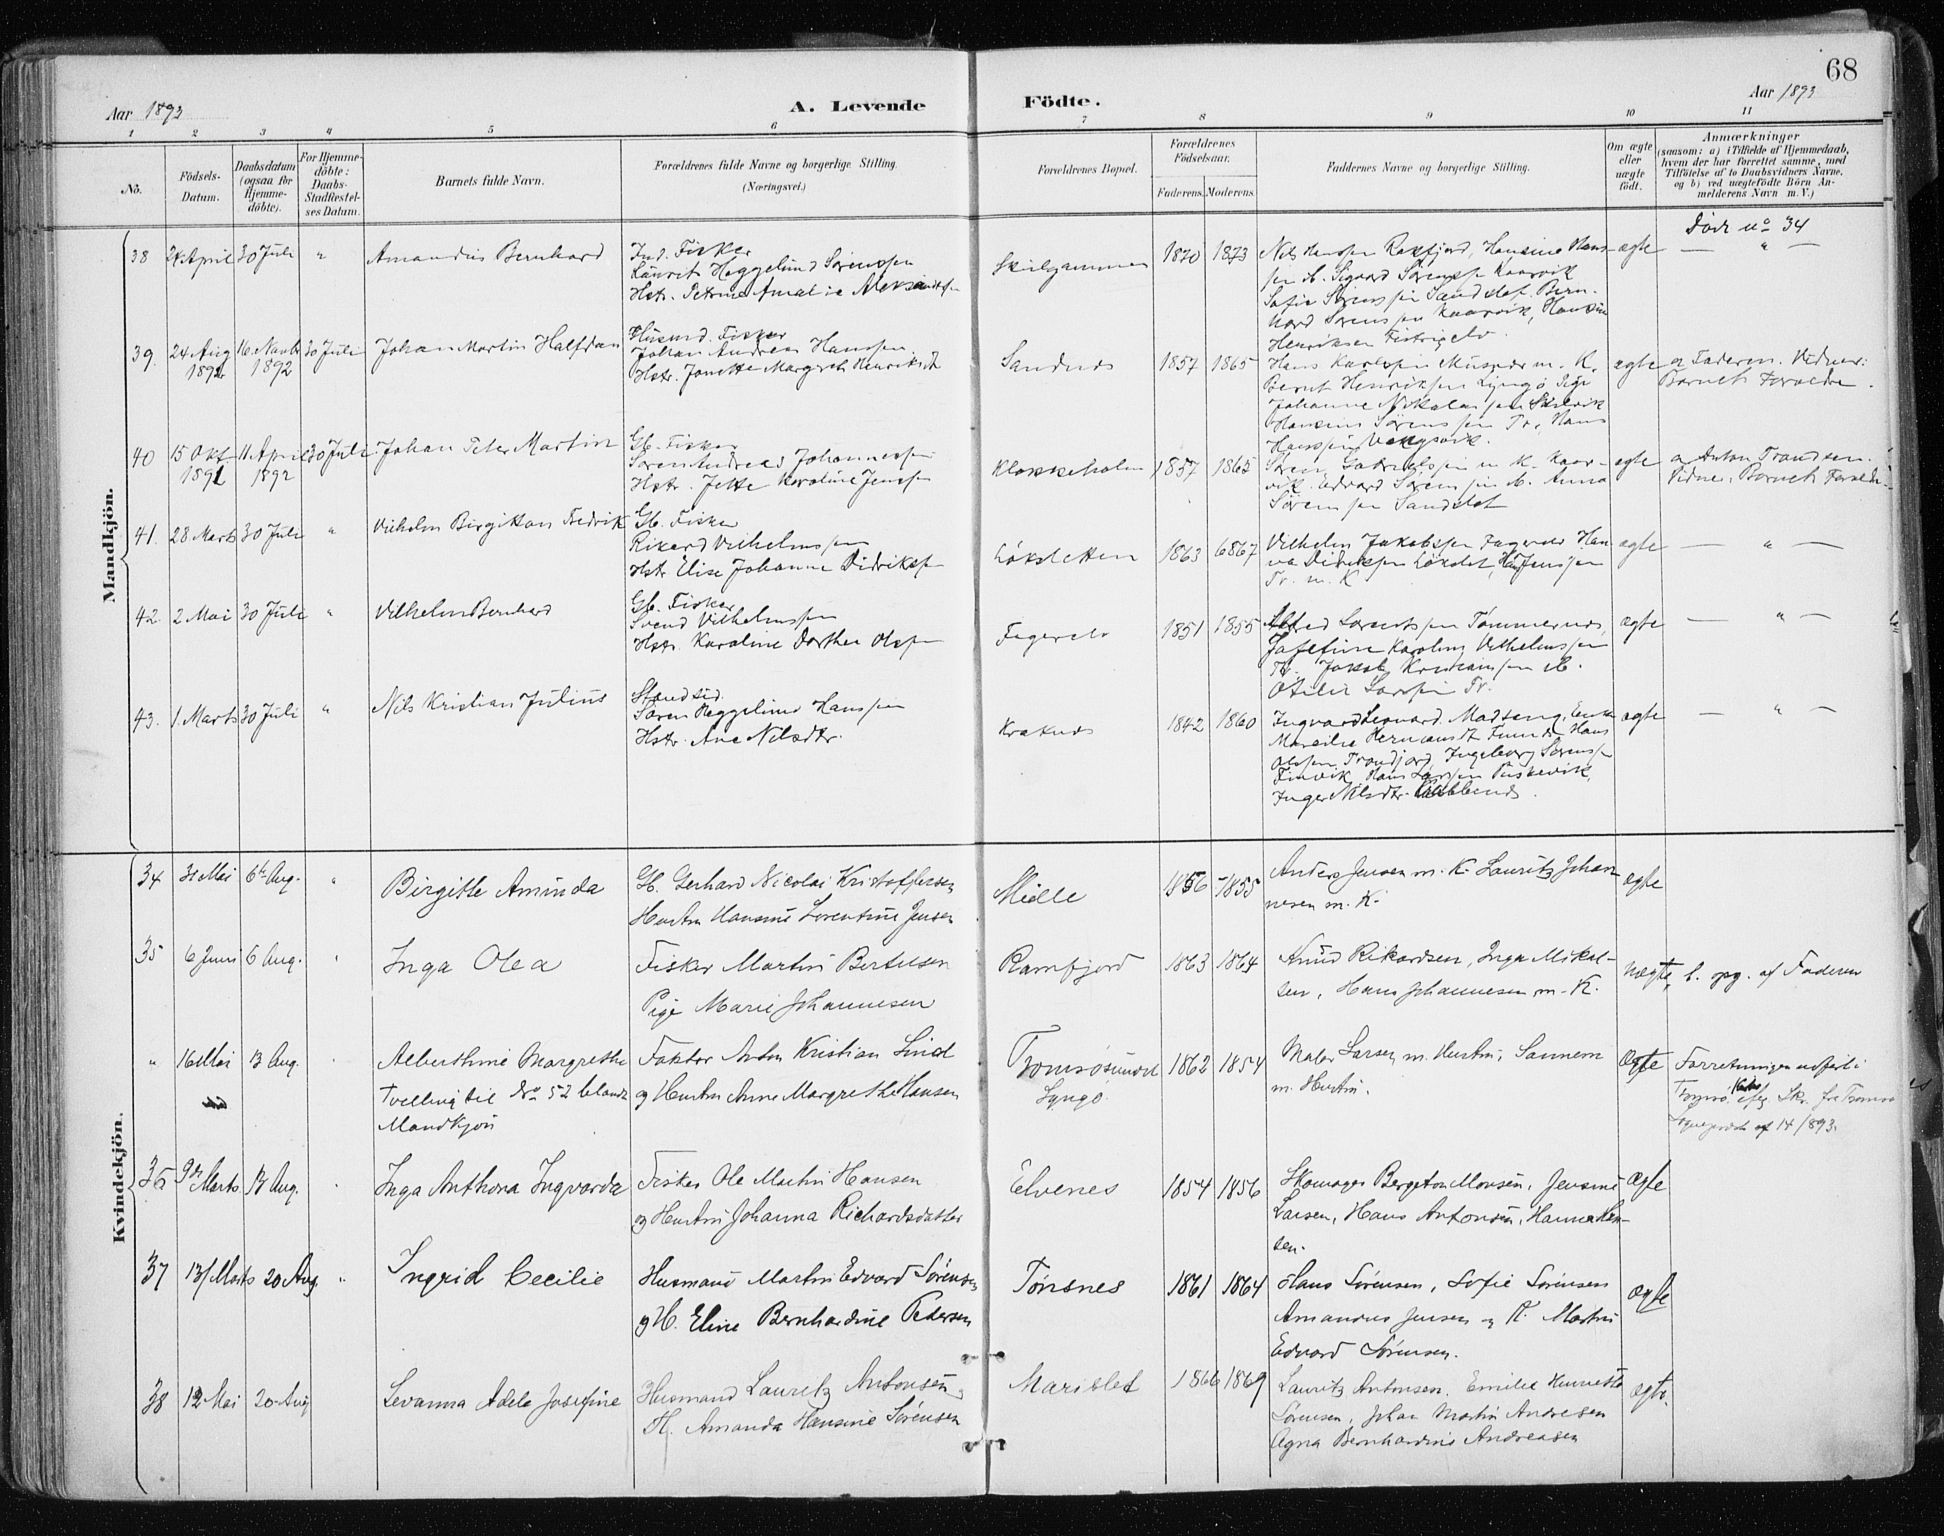 68
Aar 1893
A. Levende Födte.
Aar 1893
1 2 3 4 5 6 7 8 9 10 11
No.
Födsels-Datum.
Daabsdatum (ogsaa for Hjemme-döbte).
For Hjemme-döbte: Daabs-Stadfestel-ses Datum.
Barnets fulde Navn.
Forældrenes fulde Navne og borgerlige Stilling. (Næringsvei.)
Forældrenes Bopæl.
Forældrenes Födselsaar.
Faderens. Moderens.
Faddernes Navne og borgerlige Stilling.
Om ægte eller uægte födt.
Anmærkninger
(saasom: a) i Tilfælde af Hjemmedaab,
hvem der har forrettet samme, med
Tilföielse af to Daabsvidners Navne,
og b) ved uægtefödte Börn An-
melderens Navn m. V.)
Mandkjön.
Död No 34
38 24 April 30 Juli " Amandus Bernhard
Ind. Fisker
Laurits Heggelund Sørenssen
Hstr. Petrine Amalie
1870 1873
Nils Hanssen Rakfjord, Hansine Hans-
sen Sigvard Sørenssen Kaarvik
Sofie Sørenssen Sandslet. Bern-
hard Sørenssen Kaarvik, Hansine
Henriksen
ægte — " —
39. 24 Aug 1892 16. Novbr 1892 30 Juli Johan Martin Halfdan
Husmd. Fisker
Johan Andreas Hanssen
Hstr. Jonette Margreth Henriksdt
Sandnes 1857 1865
Hans Karlssen m. K.
Bernt Henrikssen Lyngö Pige
Johanne Nikolaissen
Hansine Sørenssen Tr, Hans
Hanssen Vengsvik.
ægte a Faderen. Vidner:
Barnets Forældre.
40 15 Okt 1891 11 April 1892 30 Juli Johan Peter Martin
Gb. Fisker
Søren Andreas Johannessen
Hstr. Jette Karoline Jenssen
Klokkeholm 1857 1865
Søren Gabrielssen m K. Kaar-
vik. Edvard Sørenssen Anna
Sørenssen Sandslet
ægte a Anton Trondsen.
Vidner: Barnets Forældre
41. 28 Marts 30 Juli " Vilhelm Birgitton Fredrik
Gb. Fisker
Rikard Vilhelmssen
Hstr Elise Johanne Didrikssen
Løksletten 1863 1867
Vilhelm Jakobssen Fagernes Han
na Didrikssen Løkslet, Hans Jenssen
Tr. m. K
ægte — " —
42. 2 Mai 30 Juli " Vilhelm Bernhard
Gb. Fisker
Svend Vilhelmssen
Hstr. Karoline Dorthea Olssen
1851 1855
Alfred Lorentssen Tömmernes,
Josefine Karoline Vilhelmssen
Tr. Jakob
Otelie Larssen Tr.
ægte — " —
43. 1. Marts 30 Juli " Nils Kristian Julius
Søren Heggelund Hanssen
Hstr. Ane Nilsdtr.
Kraknes 1842 1860
Ingvard Leonard Madsen, Enke
Hans
Olssen Trondjord, Ingeborg Sørenssen
Finvik, Hans Larssen
Inger Nilsdtr.
ægte — " —
Kvindekjön.
34 31 Mai 6te Aug. " Birgitte Aminda
Gb. Gerhard Nicolai Kristoffersen
Hustru Hansine Lorentine Jensen
1856 1855
Anders Jensen m. K. Lauritz Johan
nesen m. K.
ægte
35 6 Juni 6 Aug. " Inga Olea
Fisker Martin Bertusen
Pige Marie Johannesen
Ramfjord 1863 1864
Knud Rikardsen, Inga Mikal-
sen, Hans Johannesen m. K.
uægte, b. opg. af Faderen
" 16 Mai 13 Aug. Alberthine Margrethe
Tvelling til No 52 blandt
Mandkjön
Faktor Anton Kristian Lind
og Hustru Anne Margrethe Hansen
Tromsøsund
Lyngö
1862 1854
Maler Larsen m. Hustru, Sannem
m. Hustru.
Ægte
Forretningen udført i
Tromsø Kirke efter Skr. fra Tromsø
Sognepræst af 14/1893.
36 9de Marts 13 Aug. Inga Anthona Ingvarda
Fisker Ole Martin Hansen
og Hustru Johanna Richardsdatter
Elvenes 1854 1856
Skomager Bergeton Monsen, Jensine
Larsen, Hans Antonsen, Hanna Han-
sen.
Ægte
37 13/Marts 20 Aug. " Ingrid Cecilie
Husmand Martin Edvard Sørensen
og H. Eline Bernhardine Pedersen
Tønsnes 1861 1864
Hans Sørensen, Sofie Sørensen
Amandus Jensen og K. Martin
Edvard Sørensen.
Ægte
38 12 Mai 20 Aug Levanna Adele Josefine
Husmand Lauritz Antonsen
H. Amanda Hansine Sørensen
Marislet 1866 1869
Lauritz Antonsen. Emilie
Sørensen, Johan Martin Andresen
Agna Bernhardine Andreasen
ægte.